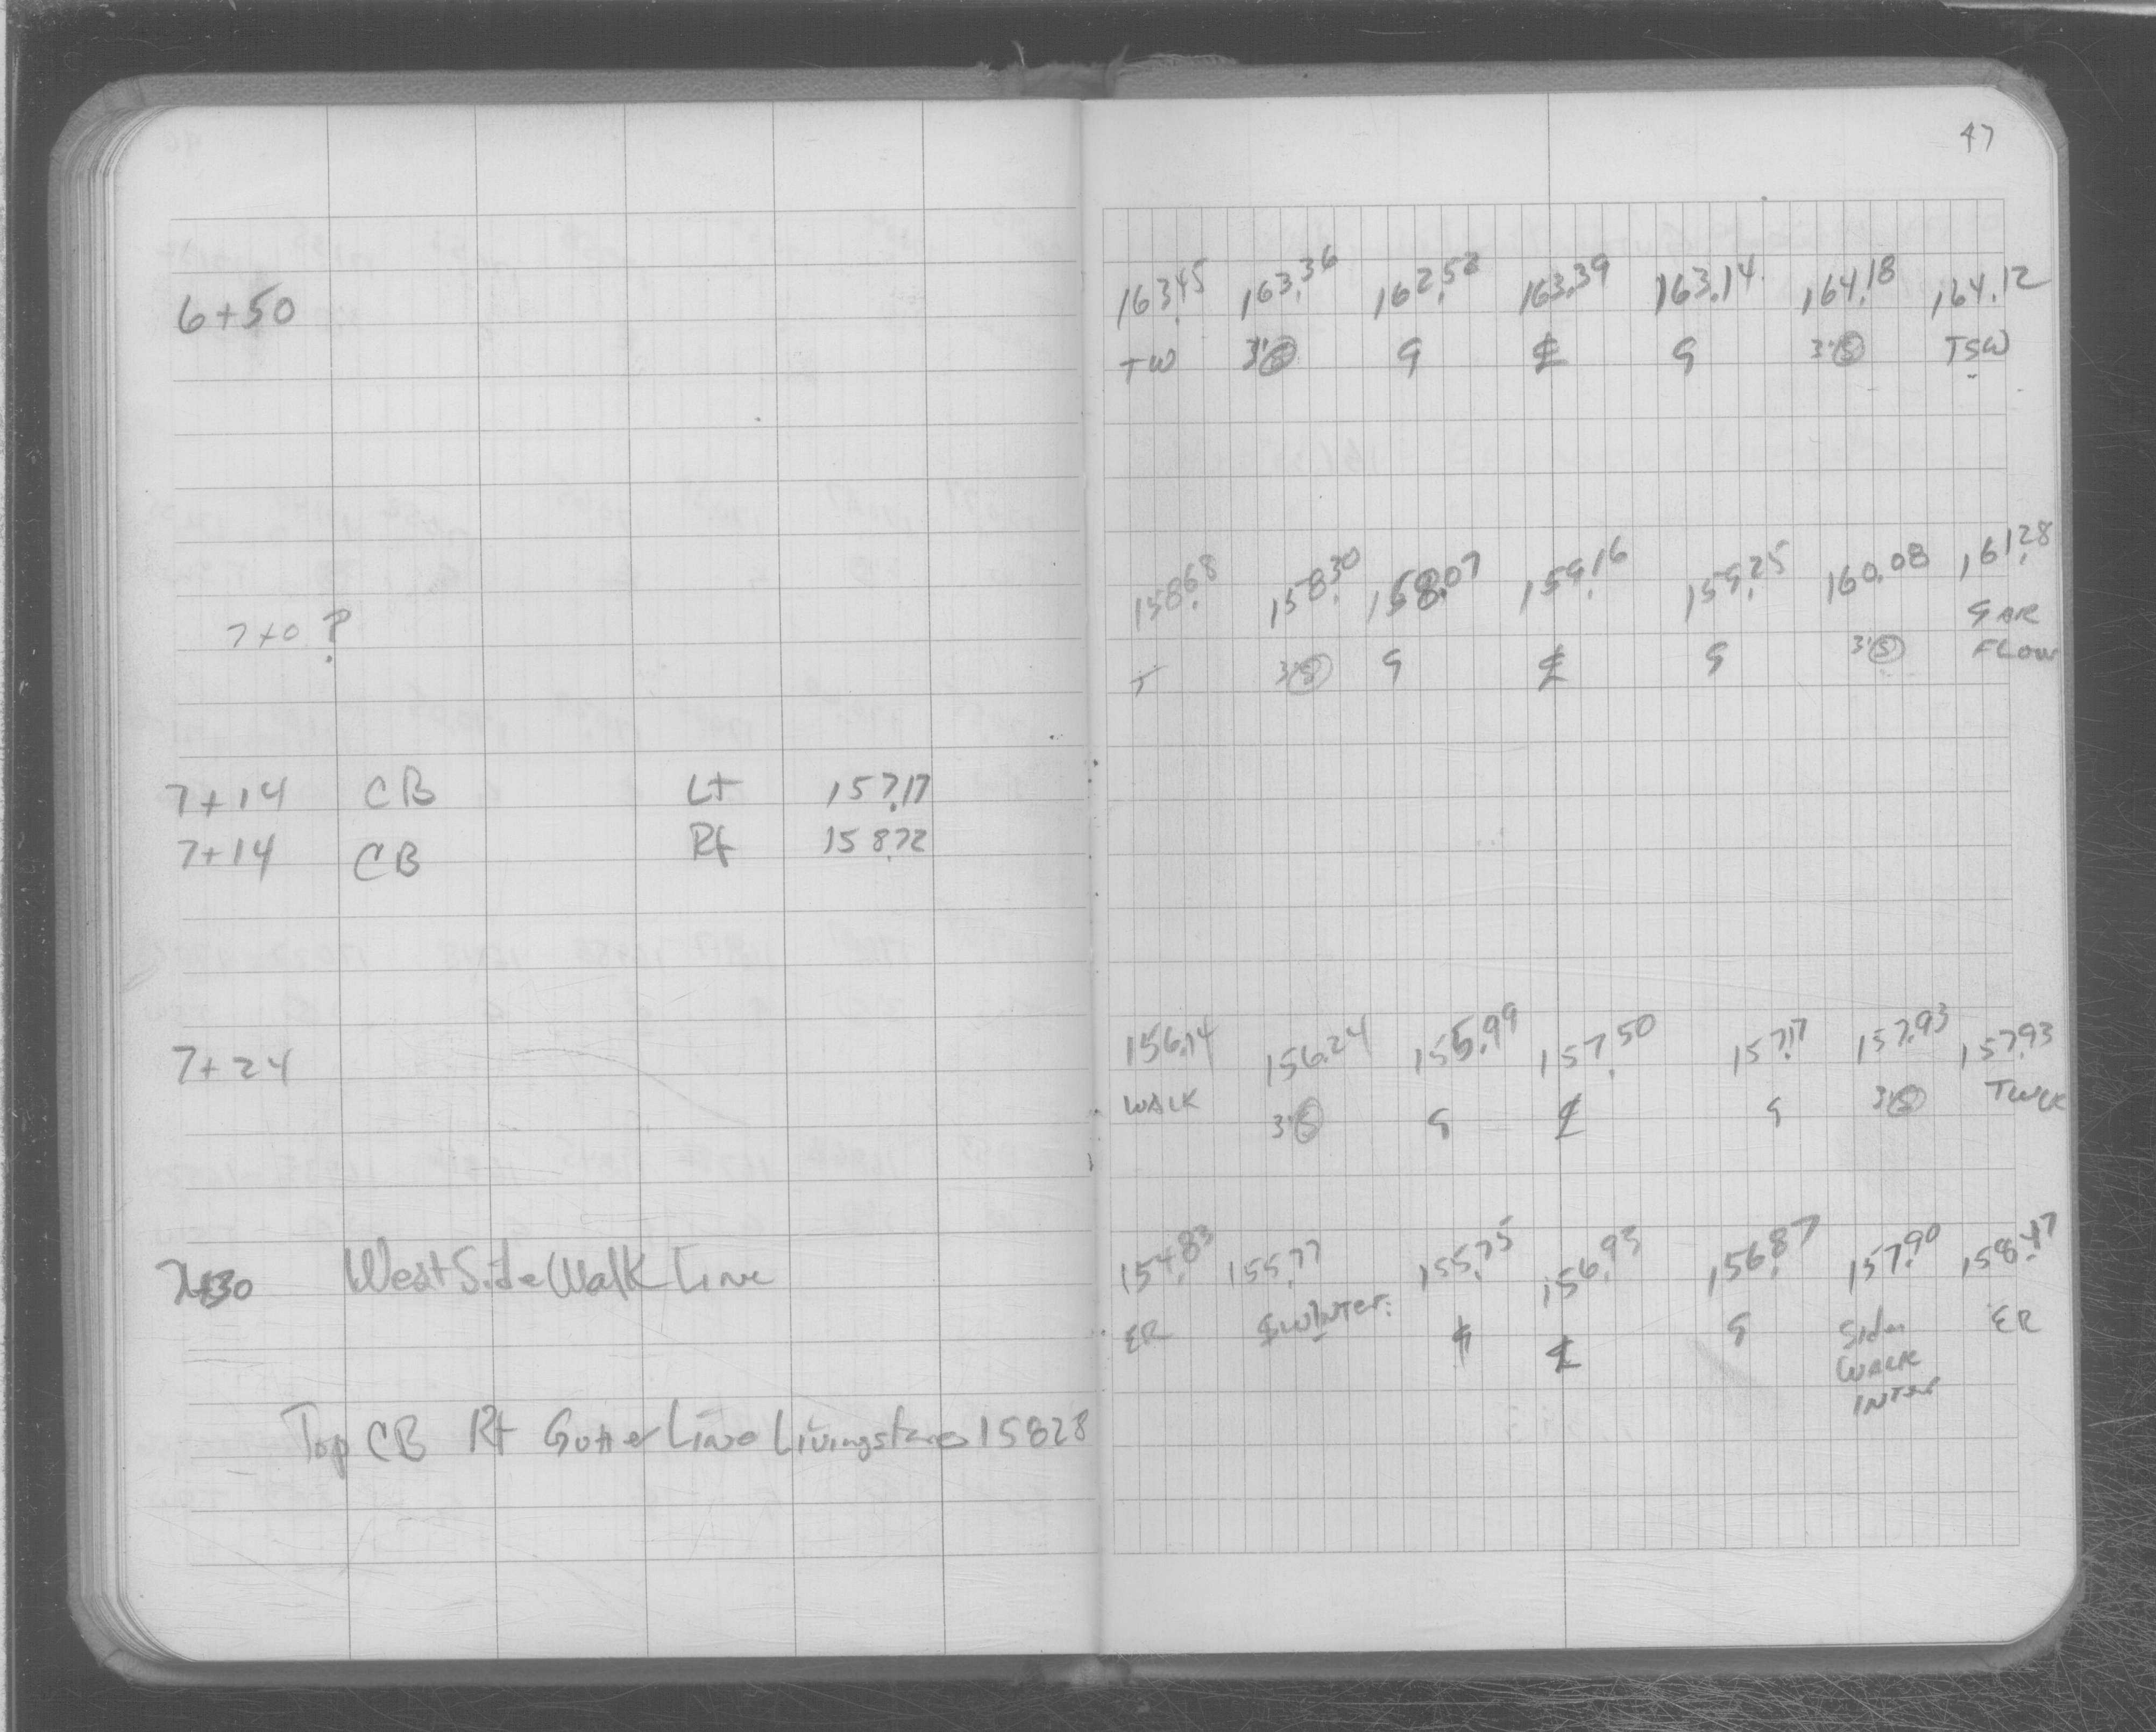 47
6+50 163.45 163.36 162.52 163.39 163.14 164.18 164.12
TW 3'Ⓢ G ℄ G 3'Ⓢ TSW
7+0 ? 158.68 158.30 158.07 159.16 159.25 160.08 161.28
T 3'Ⓢ G ℄ G 3'Ⓢ GAR FLOW
7+14 CB Lt 157.17
7+14 CB Rt 158.72
7+24 156.14 156.24 155.99 157.50 157.17 157.93 157.93
WALK 3'Ⓢ G ℄ G 3'Ⓢ TWLK
7+30 West Side Walk Line 154.83 155.77 155.75 156.93 156.87 157.90 158.47
ER SW INTER. ℄ G Side WALK INTER ER
Top CB Rt Gutter Line Livingstone 158.28